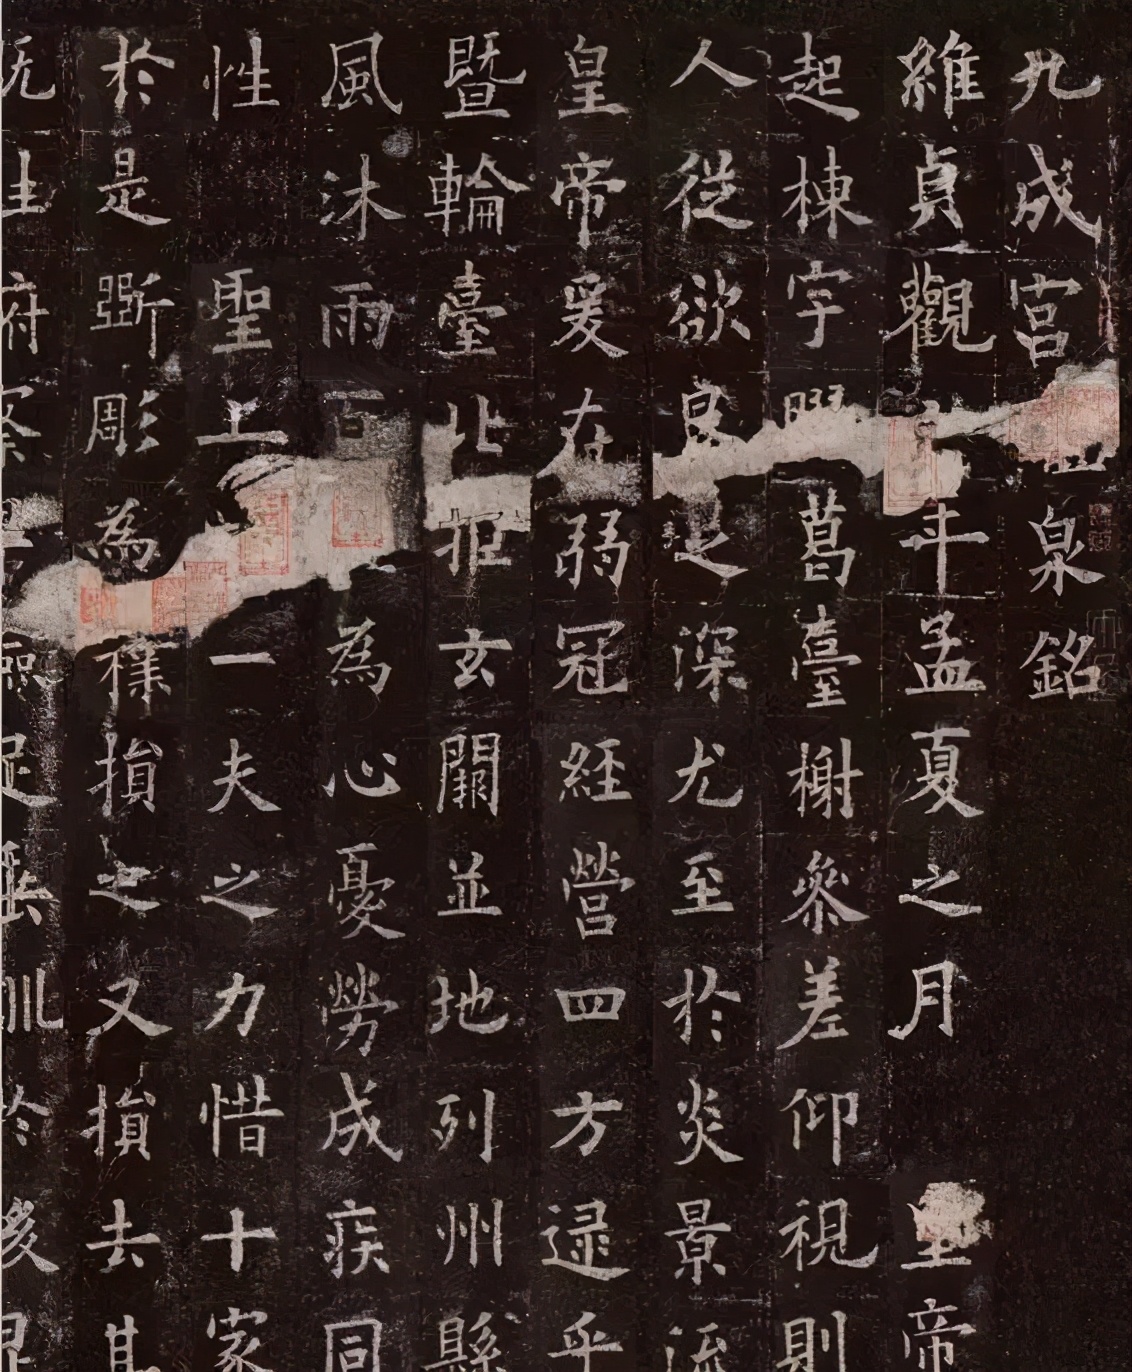 九成宮泉銘
維貞觀年孟夏之月皇帝
起棟宇葛臺榭參差仰視則
人從欲良足深尤至於炎景流
皇帝爰在弱冠經營四方逮乎
暨輪臺北拒玄闕並地列州縣
風沐雨百為心憂勞成疾同
性聖上一夫之力惜十家
於是斲彫為樸損之又損去甚
既往府